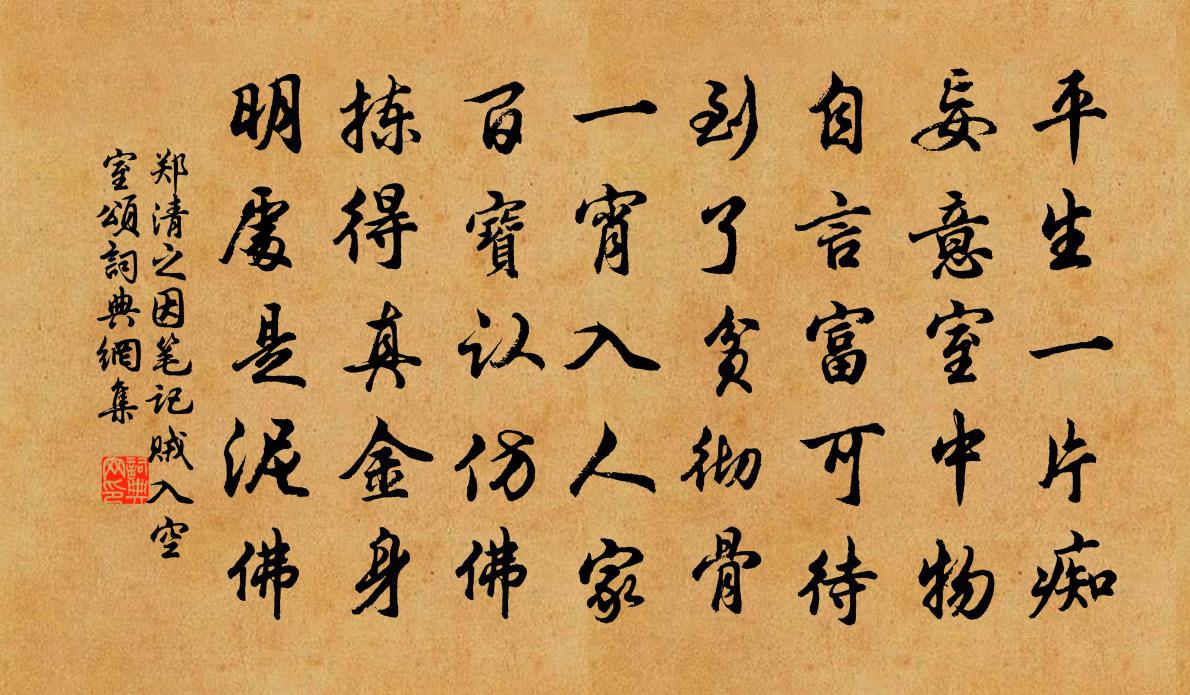 平生一片痴
妄意室中物
自言富可待
到了贫彻骨
一宵入人家
百寶认仿佛
拣得真金身
明處是泥佛
郑清之因笔记贼入空
室頌詞典網集
詞典
网印